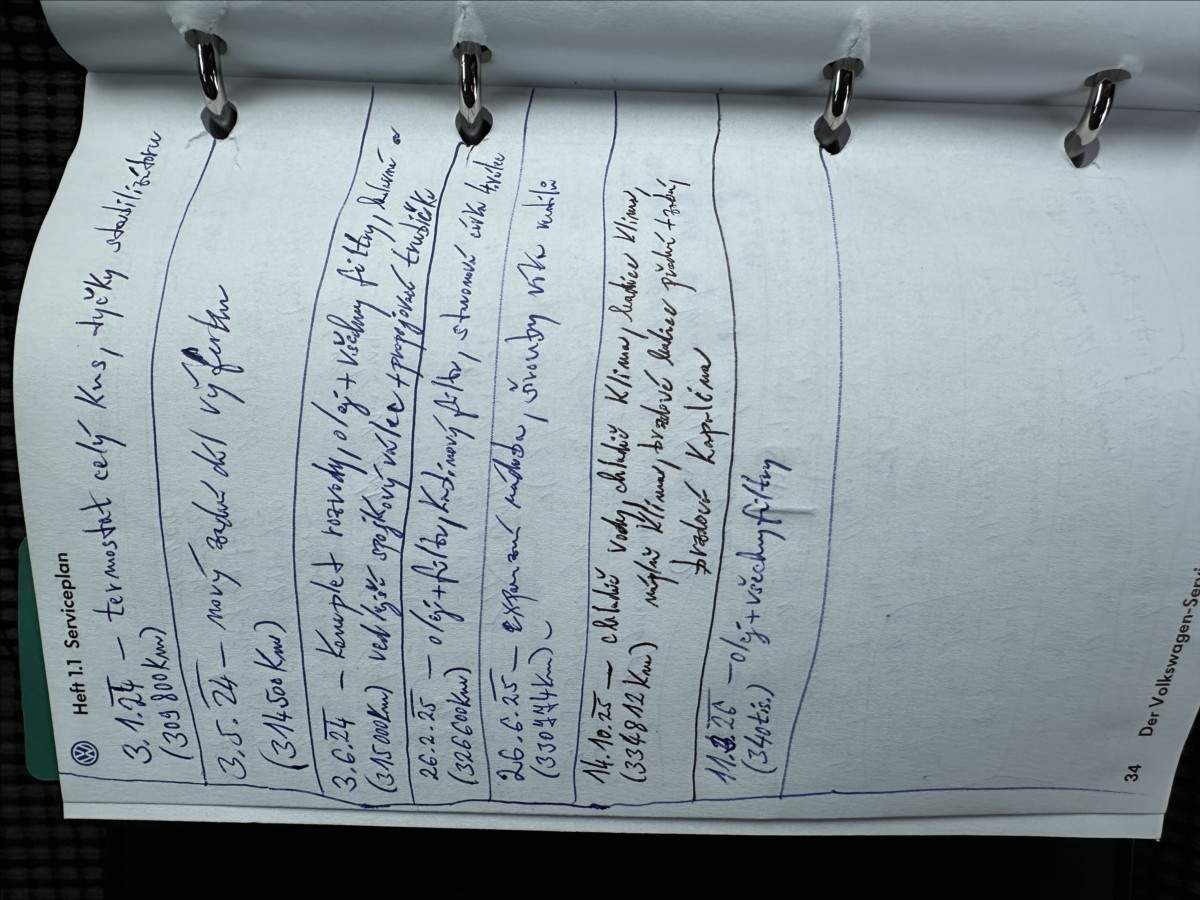 Heft 1.1 Serviceplan
3.1.24 – termostat celý kus, tyčky stabilizátoru
(309 800 Km)
3.5.24 – nový zadní díl výfuku
(314500 Km)
3.6.24 – Komplet rozvody, olej + všechny filtry,
(315000 Km) vedlejší spojkový válec + propojovací trubička
26.2.25 – olej + filtr, kabinový filtr,
(326600 Km)
26.6.25 – expanzní nádoba, šrouby víka ventilů
(330774 Km)
14.10.25 – chladič vody, chladič klima, hadice klima,
(334812 Km) náplň klima, brzdové hadice přední + zadní,
brzdová kapalina
11.3.26 – olej + všechny filtry
(340 tis.)
34
Der Volkswagen-Servi